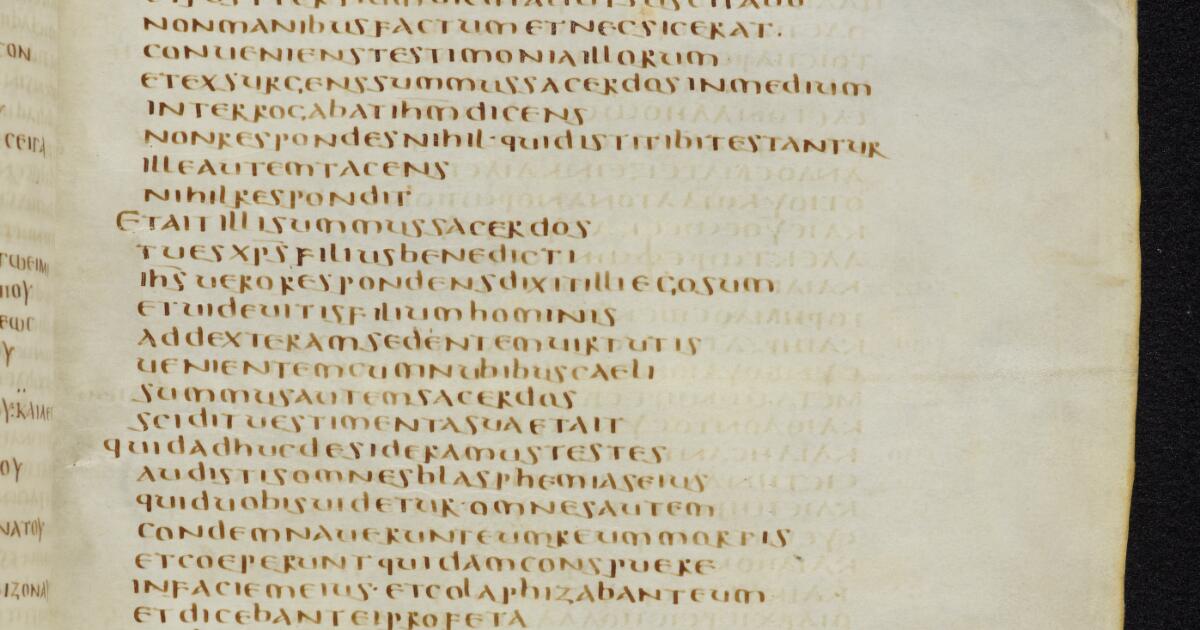 CON
ΠΟΥ
ΕΩC
Υ
ΟΥ
ΝΑΤΟΥ
ΙΖΟΝΑ
NONMANIBUSFACTUM ETNECSICERAT·
CONUENIENSTESTIMONIAILLORUM
ETEXSURGENSSUMMUSSACERDOS INMEDIUM
INTERROGABATIHM̅DICENS
NONRESPONDESNIHIL·QUIDISTITIBITESTANTUR
ILLEAUTEMTACENS
NIHILRESPONDIT
ETAIT ILLISUMMUSSACERDOS
TUESXPS̅ FILIUSBENEDICTI
IHS̅ UERORESPONDENSDIXITILLIEGOSUM
ETUIDEUITISFILIUMHOMINIS
ADDEXTERAMSEDENTEMUIRTUTIS
UENIENTEMCUMNUBIBUSCAELI
SUMMUSAUTEMSACERDOS
SCIDITUESTIMENTASUAETAIT
QUIDADHUCDESIDERAMUSTESTES
AUDISTISOMNESBLASPHEMIASEIUS
QUIDUOBISUIDETUR·OMNESAUTEM
CONDEMNAUERUNTEUMREUMMORTIS
ETCOEPERUNTQUIDAMCONSPUERE
INFACIEMEIUS·ETCOLAPHIZABANTEUM
ETDICEBANTEIPROFETA